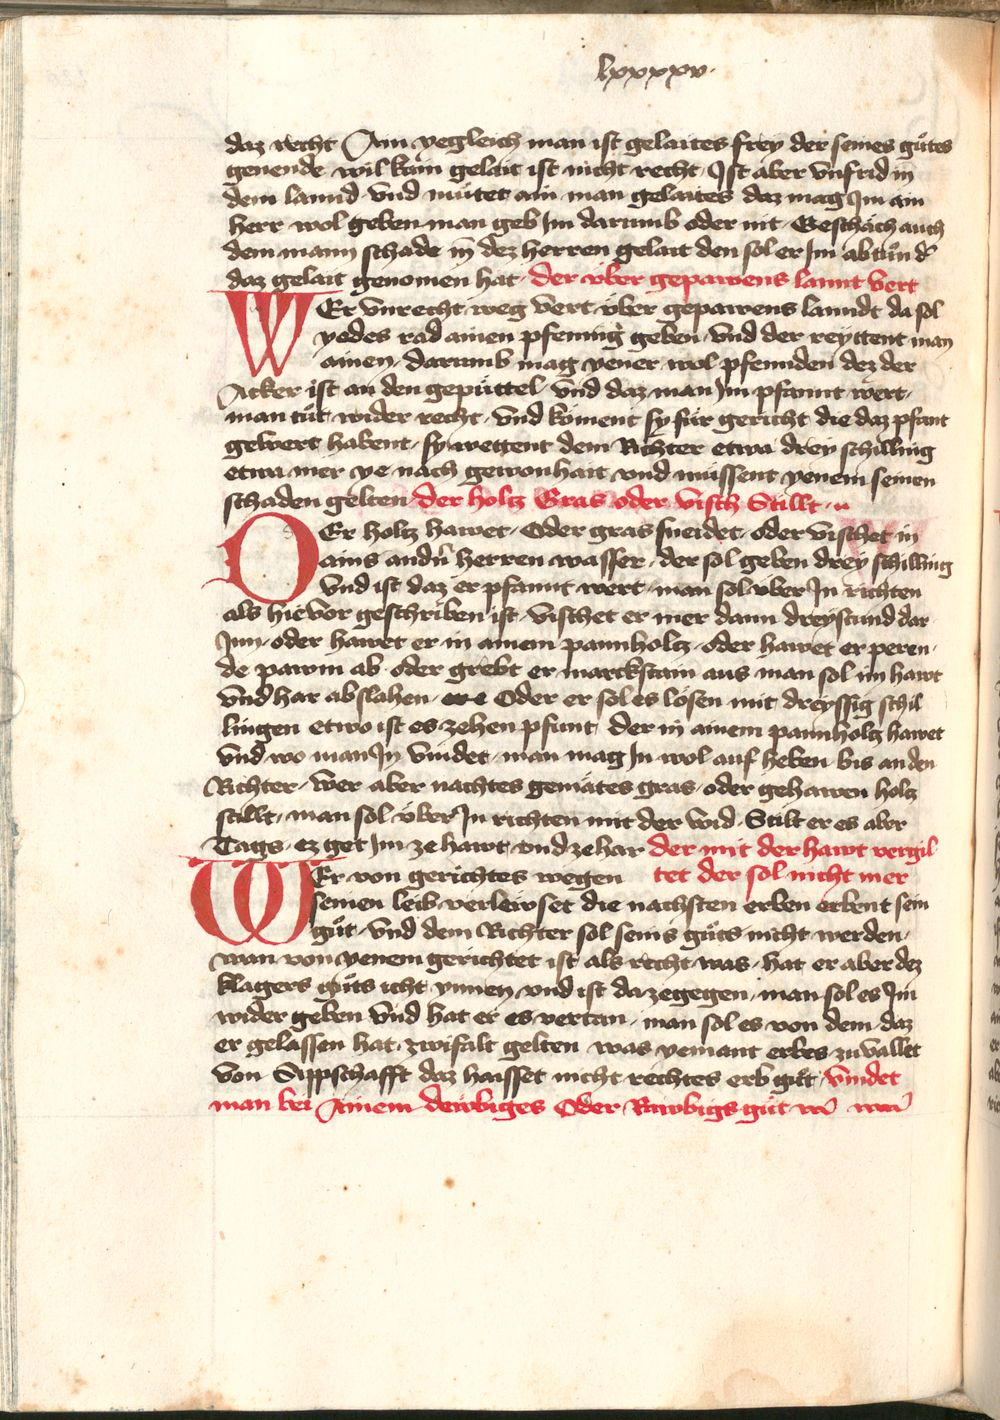 lxxxxv.
daz recht Ain yegleich man ist gelaites frey der seines gůtes
genende wil kain gelait ist nicht recht Ist aber vnfrid in
dem lannd vnd můtet ain man gelaites daz mag Im ain
herr wol geben man geb Im darumb oder nit Geschäch auch
dem mann schade in dez herren gelait den sol er Im ab tůn d'
daz gelait genomen hat. der vber gepawens lannt vert
WEr vnrecht weg vert vber gepawens lanndt da sol
yedes rad ainen pfennig geben vnd der reyttent man
ainen. darumb mag yener wol pfennden dez der
Acker ist an den gepüttel vnd daz man Im pfannt wert.
man tůt wider recht. vnd koment sy für gericht die daz pfant
gewert habent. sy wettent dem Richter etwa drey schilling
etwa mer ye nach gewonhait vnd müssent yenem seinen
schaden gelten. der holtz Gras oder visch Stillt.
DEr holtz hawet. Oder gras sneidet. oder vischet in
ains andn̄ herren wasser. der sol geben drey schilling
vnd ist daz er pfannt wert. man sol vber In richten
als hie vor geschriben ist. vischet er mer dann dreystund dar
Inn. oder hawet er in ainem pannholtz. oder hawet er peren.
de pawm ab. oder grebt er marckstain aus man sol im hawt
vnd har abslahen. Oder er sol es lösen mit dreyssig schil
lingen etwo ist es zehen pfunt der in ainem pannholtz hawet
vnd wo man In vindet. man mag In wol auf heben bis an den
Richter. wer aber nachtes gemätes gras. oder gehawen holtz
stillt. man sol vber In richten mit der wid. Stilt er es aber
Tags. ez get Im ze hawt vnd ze har der mit der hawt vergil
WEr von gerichtes wegen tet der sol nicht mer
seinen leib verlewset die nachsten erben erbent sein
gůt. vnd dem Richter sol seins gůts nicht werden.
wan von yenem gerichtet ist als recht was. hat er aber dez
klagers gůts icht ynnen vnd ist da zegegen. man sol es Im
wider geben vnd hat er es vertan. man sol es von dem daz
er gelassen hat. zwifalt gelten was yemant erbes zu vallet
von Sippschafft daz haisset nicht rechtes erb gůt. vindet
man bei Ainem dewbiges Oder Rawbigs gůt